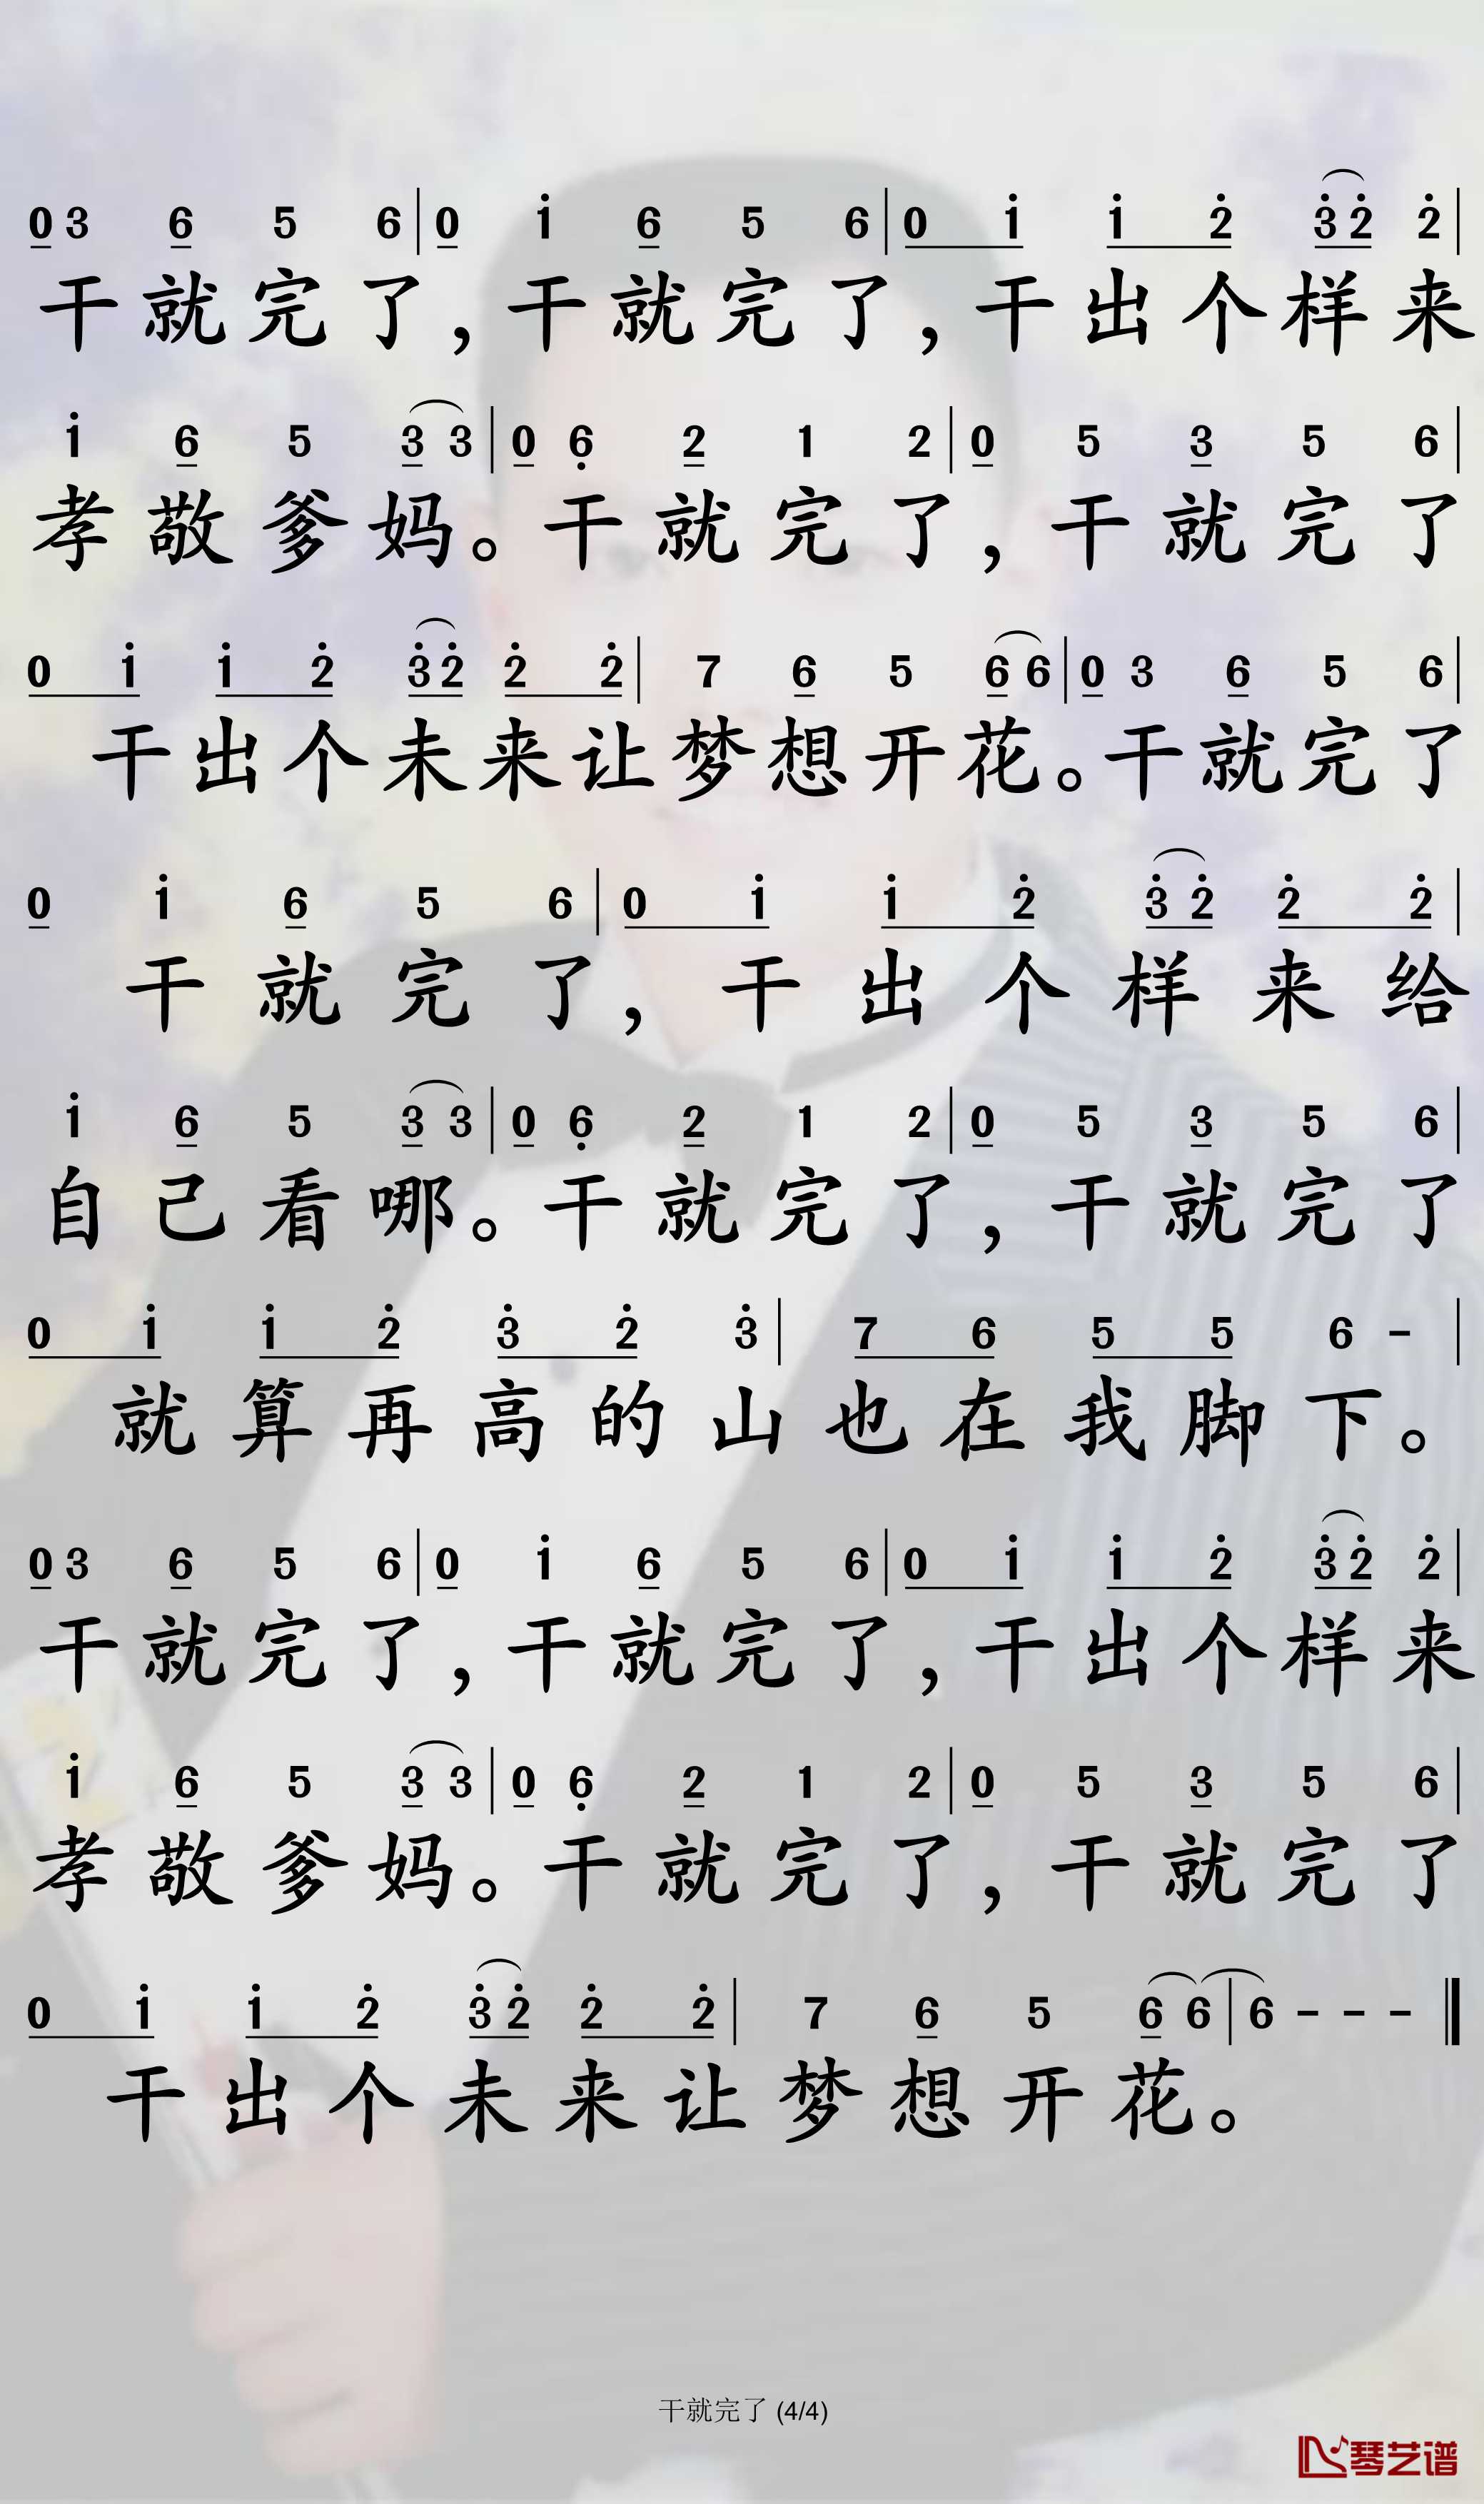 0 3 6 5 6 | 0 1̇ 6 5 6 | 0 1̇ 1̇ 2̇ 3̇ 2̇ 2̇ |
干就完了，干就完了，干出个样来
1̇ 6 5 3 3 | 0 6̣ 2 1 2 | 0 5 3 5 6 |
孝敬爹妈。干就完了，干就完了
0 1̇ 1̇ 2̇ 3̇ 2̇ 2̇ 2̇ | 7 6 5 6 6 | 0 3 6 5 6 |
干出个未来让梦想开花。干就完了
0 1̇ 6 5 6 | 0 1̇ 1̇ 2̇ 3̇ 2̇ 2̇ 2̇ |
干就完了，干出个样来给
1̇ 6 5 3 3 | 0 6̣ 2 1 2 | 0 5 3 5 6 |
自己看哪。干就完了，干就完了
0 1̇ 1̇ 2̇ 3̇ 2̇ 3̇ | 7 6 5 5 6 - |
就算再高的山也在我脚下。
0 3 6 5 6 | 0 1̇ 6 5 6 | 0 1̇ 1̇ 2̇ 3̇ 2̇ 2̇ |
干就完了，干就完了，干出个样来
1̇ 6 5 3 3 | 0 6̣ 2 1 2 | 0 5 3 5 6 |
孝敬爹妈。干就完了，干就完了
0 1̇ 1̇ 2̇ 3̇ 2̇ 2̇ 2̇ | 7 6 5 6 6 | 6 - - - ‖
干出个未来让梦想开花。
干就完了 (4/4)
琴艺谱